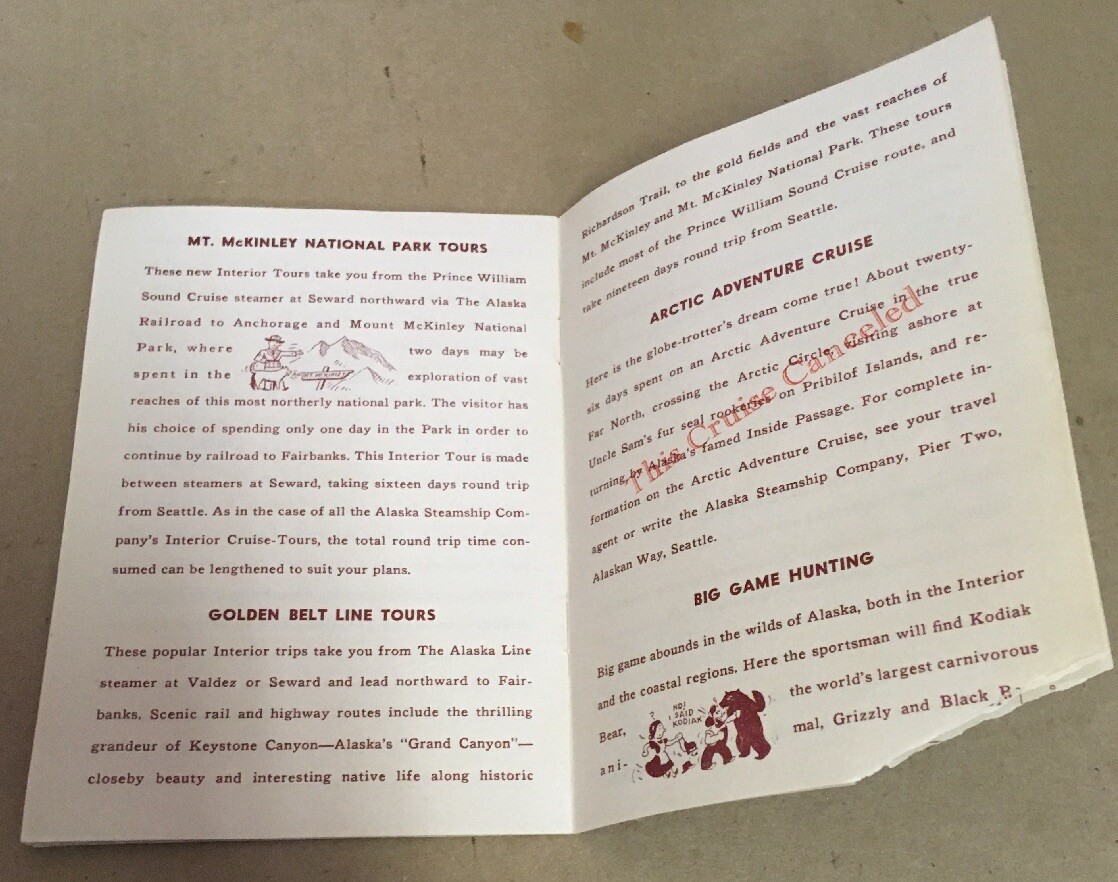 MT. McKINLEY NATIONAL PARK TOURS
These new Interior Tours take you from the Prince William
Sound Cruise steamer at Seward northward via The Alaska
Railroad to Anchorage and Mount McKinley National
Park, where two days may be
spent in the exploration of vast
MOUNT McKINLEY
reaches of this most northerly national park. The visitor has
his choice of spending only one day in the Park in order to
continue by railroad to Fairbanks. This Interior Tour is made
between steamers at Seward, taking sixteen days round trip
from Seattle. As in the case of all the Alaska Steamship Com-
pany's Interior Cruise-Tours, the total round trip time con-
sumed can be lengthened to suit your plans.
GOLDEN BELT LINE TOURS
These popular Interior trips take you from The Alaska Line
steamer at Valdez or Seward and lead northward to Fair-
banks. Scenic rail and highway routes include the thrilling
grandeur of Keystone Canyon—Alaska's "Grand Canyon"—
closeby beauty and interesting native life along historic
Richardson Trail, to the gold fields and the vast reaches of
Mt. McKinley and Mt. McKinley National Park. These tours
include most of the Prince William Sound Cruise route, and
take nineteen days round trip from Seattle.
ARCTIC ADVENTURE CRUISE
Here is the globe-trotter's dream come true! About twenty-
six days spent on an Arctic Adventure Cruise in the true
Far North, crossing the Arctic Circle, visiting ashore at
Uncle Sam's fur seal rookeries on Pribilof Islands, and re-
turning by Alaska's famed Inside Passage. For complete in-
formation on the Arctic Adventure Cruise, see your travel
agent or write the Alaska Steamship Company, Pier Two,
Alaskan Way, Seattle.
This Cruise Canceled
BIG GAME HUNTING
Big game abounds in the wilds of Alaska, both in the Interior
and the coastal regions. Here the sportsman will find Kodiak
Bear, the world's largest carnivorous
ani- mal, Grizzly and Black
?
NO!
I SAID
KODIAK